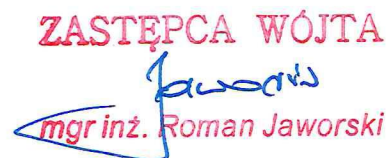 ZASTĘPCA WÓJTA
Jaworski
mgr inż. Roman Jaworski